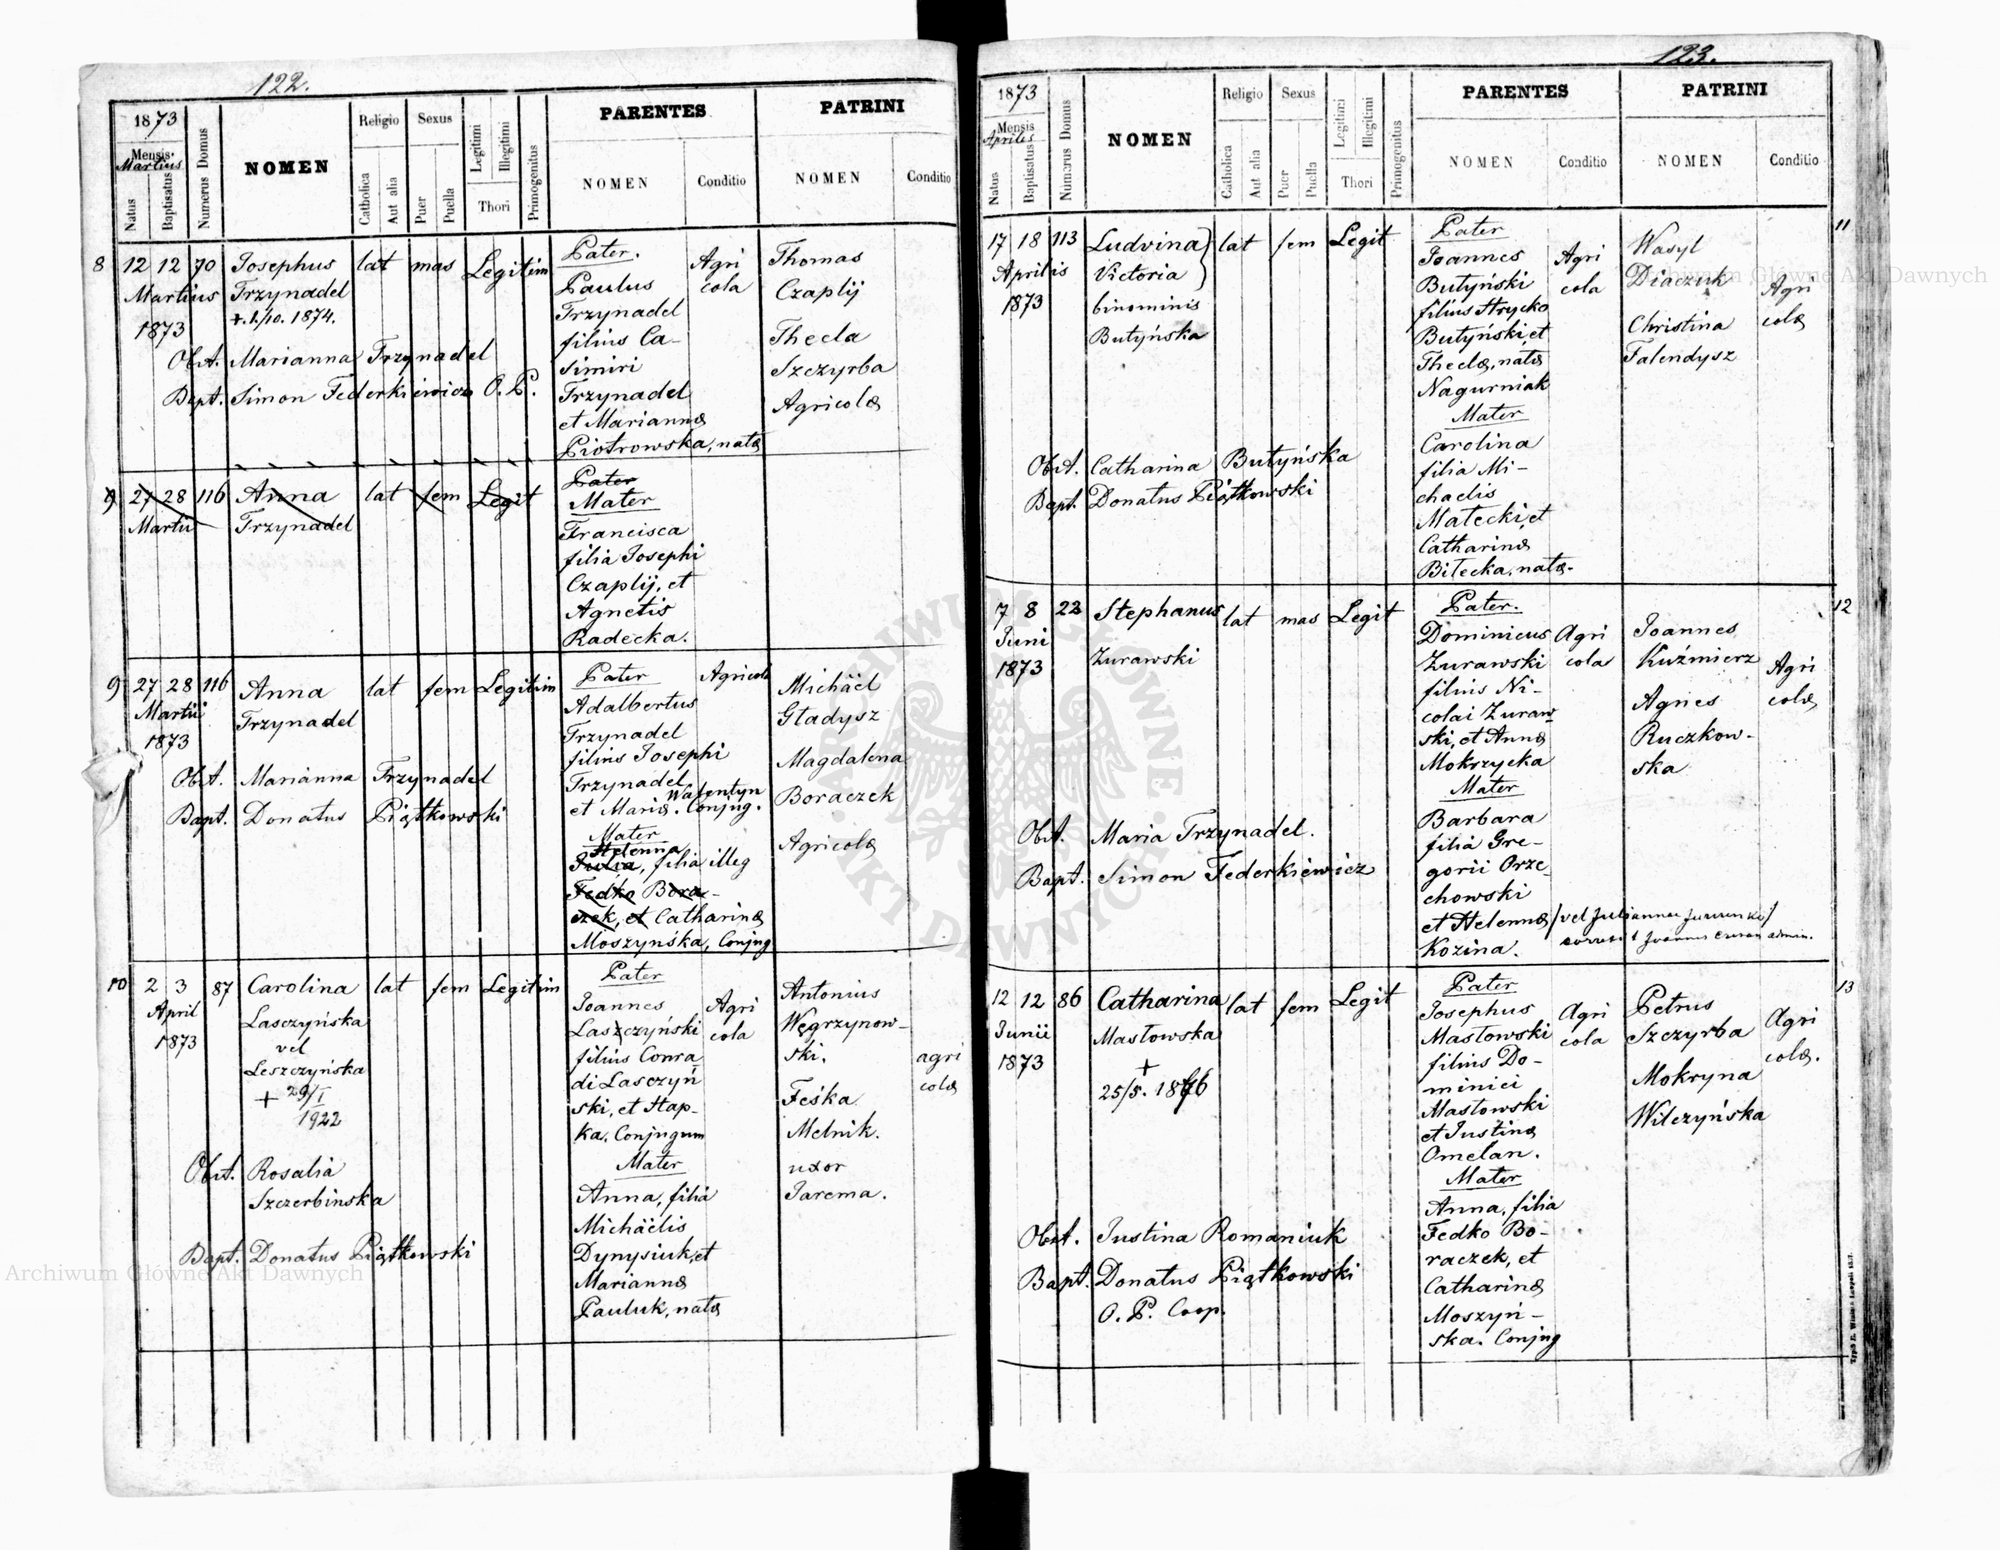 122.
1873
Mensis
Martius
Natus
Baptisatus
Numerus Domus
NOMEN
Religio
Catholica
Aut alia
Sexus
Puer
Puella
Legitimi
Illegitimi
Thori
Primogenitus
PARENTES
NOMEN
Conditio
PATRINI
NOMEN
Conditio
8 12 12 70 Josephus lat mas Legitim
Martius Trzynadel
+ 1./10. 1874.
1873
Obst. Marianna Trzynadel
Bapt. Simon Federkiewicz O. P.
Pater.
Paulus
Trzynadel
filius Ca-
simiri
Trzynadel
et Mariannæ
Piotrowska, natæ
Agri
cola
Thomas
Czaplij
Thecla
Szczyrba
Agricolæ
9 27 28 116 Anna lat fem Legit
Martii Trzynadel
Pater
Mater
Francisca
filia Josephi
Czaplij, et
Agnetis
Radecka.
9 27 28 116 Anna lat fem Legitim
Martii Trzynadel
1873
Obst. Marianna Trzynadel
Bapt. Donatus Piątkowski
Pater
Adalbertus
Trzynadel
filius Josephi
Trzynadel
et Mariæ Walentyn Conjug.
Mater
Helenna
Julia, filia illeg
Fedko Bora-
czek, et Catharinæ
Moszyńska, Conjug
Agricola
Michäel
Gładysz
Magdalena
Boraczek
Agricolæ
10 2 3 87 Carolina lat fem Legitim
April Lasczyńska
1873 vel
Leszczyńska
+ 29/I
1922
Obst. Rosalia
Szczerbinska
Bapt. Donatus Piątkowski
Pater
Joannes
Laszczyński
filius Conra
di Lasczyń
ski, et Hap-
ka. Conjugum
Mater
Anna, filia
Michäelis
Dynysiuk, et
Mariannæ
Pauluk, natæ
Agri
cola
Antonius
Węgrzynow-
ski.
Feśka
Melnik.
uxor
Jarema.
agri
colæ
123.
1873
Mensis
Aprilis
Natus
Baptisatus
Numerus Domus
NOMEN
Religio
Catholica
Aut alia
Sexus
Puer
Puella
Legitimi
Illegitimi
Thori
Primogenitus
PARENTES
NOMEN
Conditio
PATRINI
NOMEN
Conditio
17 18 113 Ludvina lat fem Legit
Aprilis Victoria
1873 binominis
Butyńska
Obst. Catharina Butyńska
Bapt. Donatus Piątkowski
Pater
Joannes
Butyński
filius Hrycko
Butyński, et
Theclæ, natæ
Nagurniak
Mater
Carolina
filia Mi-
chaelis
Małecki, et
Catharinæ
Bilecka, natæ.
Agri
cola
Wasyl
Diaczuk
Christina
Falendysz
Agri
colæ
11
7 8 22 Stephanus lat mas Legit
Juni
1873 Zurawski
Obst. Maria Trzynadel.
Bapt. Simon Federkiewicz
Pater.
Dominicus
Zurawski
filius Ni-
colai Zuraw
ski, et Annæ
Mokrzycka
Mater
Barbara
filia Gre-
gorii Orze
chowski
et Helennæ
Kozina.
Agri
cola
Joannes
Kuźmierz
Agnes
Ruczkow-
ska
Agri
colæ
12
12 12 86 Catharina lat fem Legit
Junii Masłowska
1873 +
25/5. 1876
Obst. Justina Romaniuk
Bapt. Donatus Piątkowski
O. P. Coop.
Pater
Josephus
Masłowski
filius Do-
minici
Masłowski
et Justinæ
Omelan.
Mater
Anna, filia
Fedko Bo-
raczek, et
Catharinæ
Moszyń-
ska. Conjug
Agri
cola
Petrus
Szczyrba
Mokryna
Wilczyńska
Agri
colæ.
13
Archiwum Główne Akt Dawnych
Archiwum Główne Akt Dawnych
ARCHIWUM GŁÓWNE AKT DAWNYCH